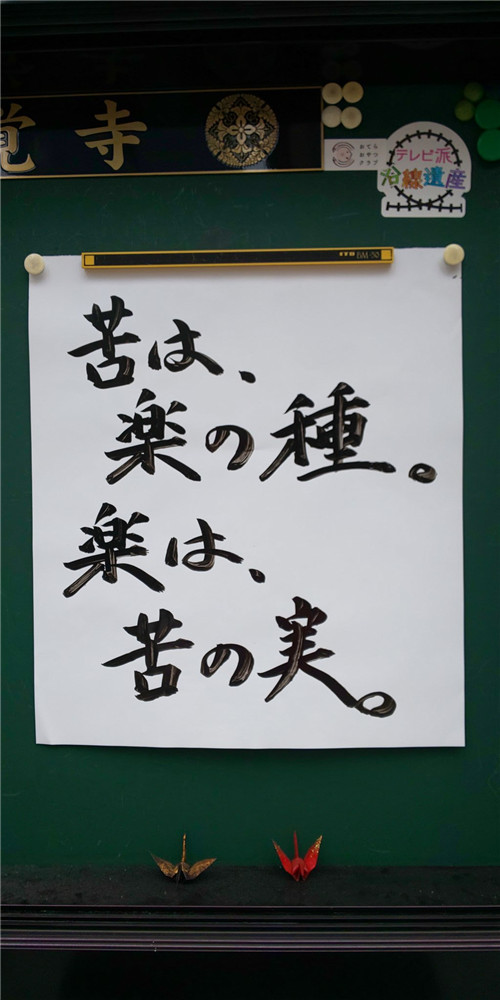 覚寺
おてら
おやつ
クラブ
テレビ派
沿線遺産
ITO BM-30
苦は、
楽の種。
楽は、
苦の実。